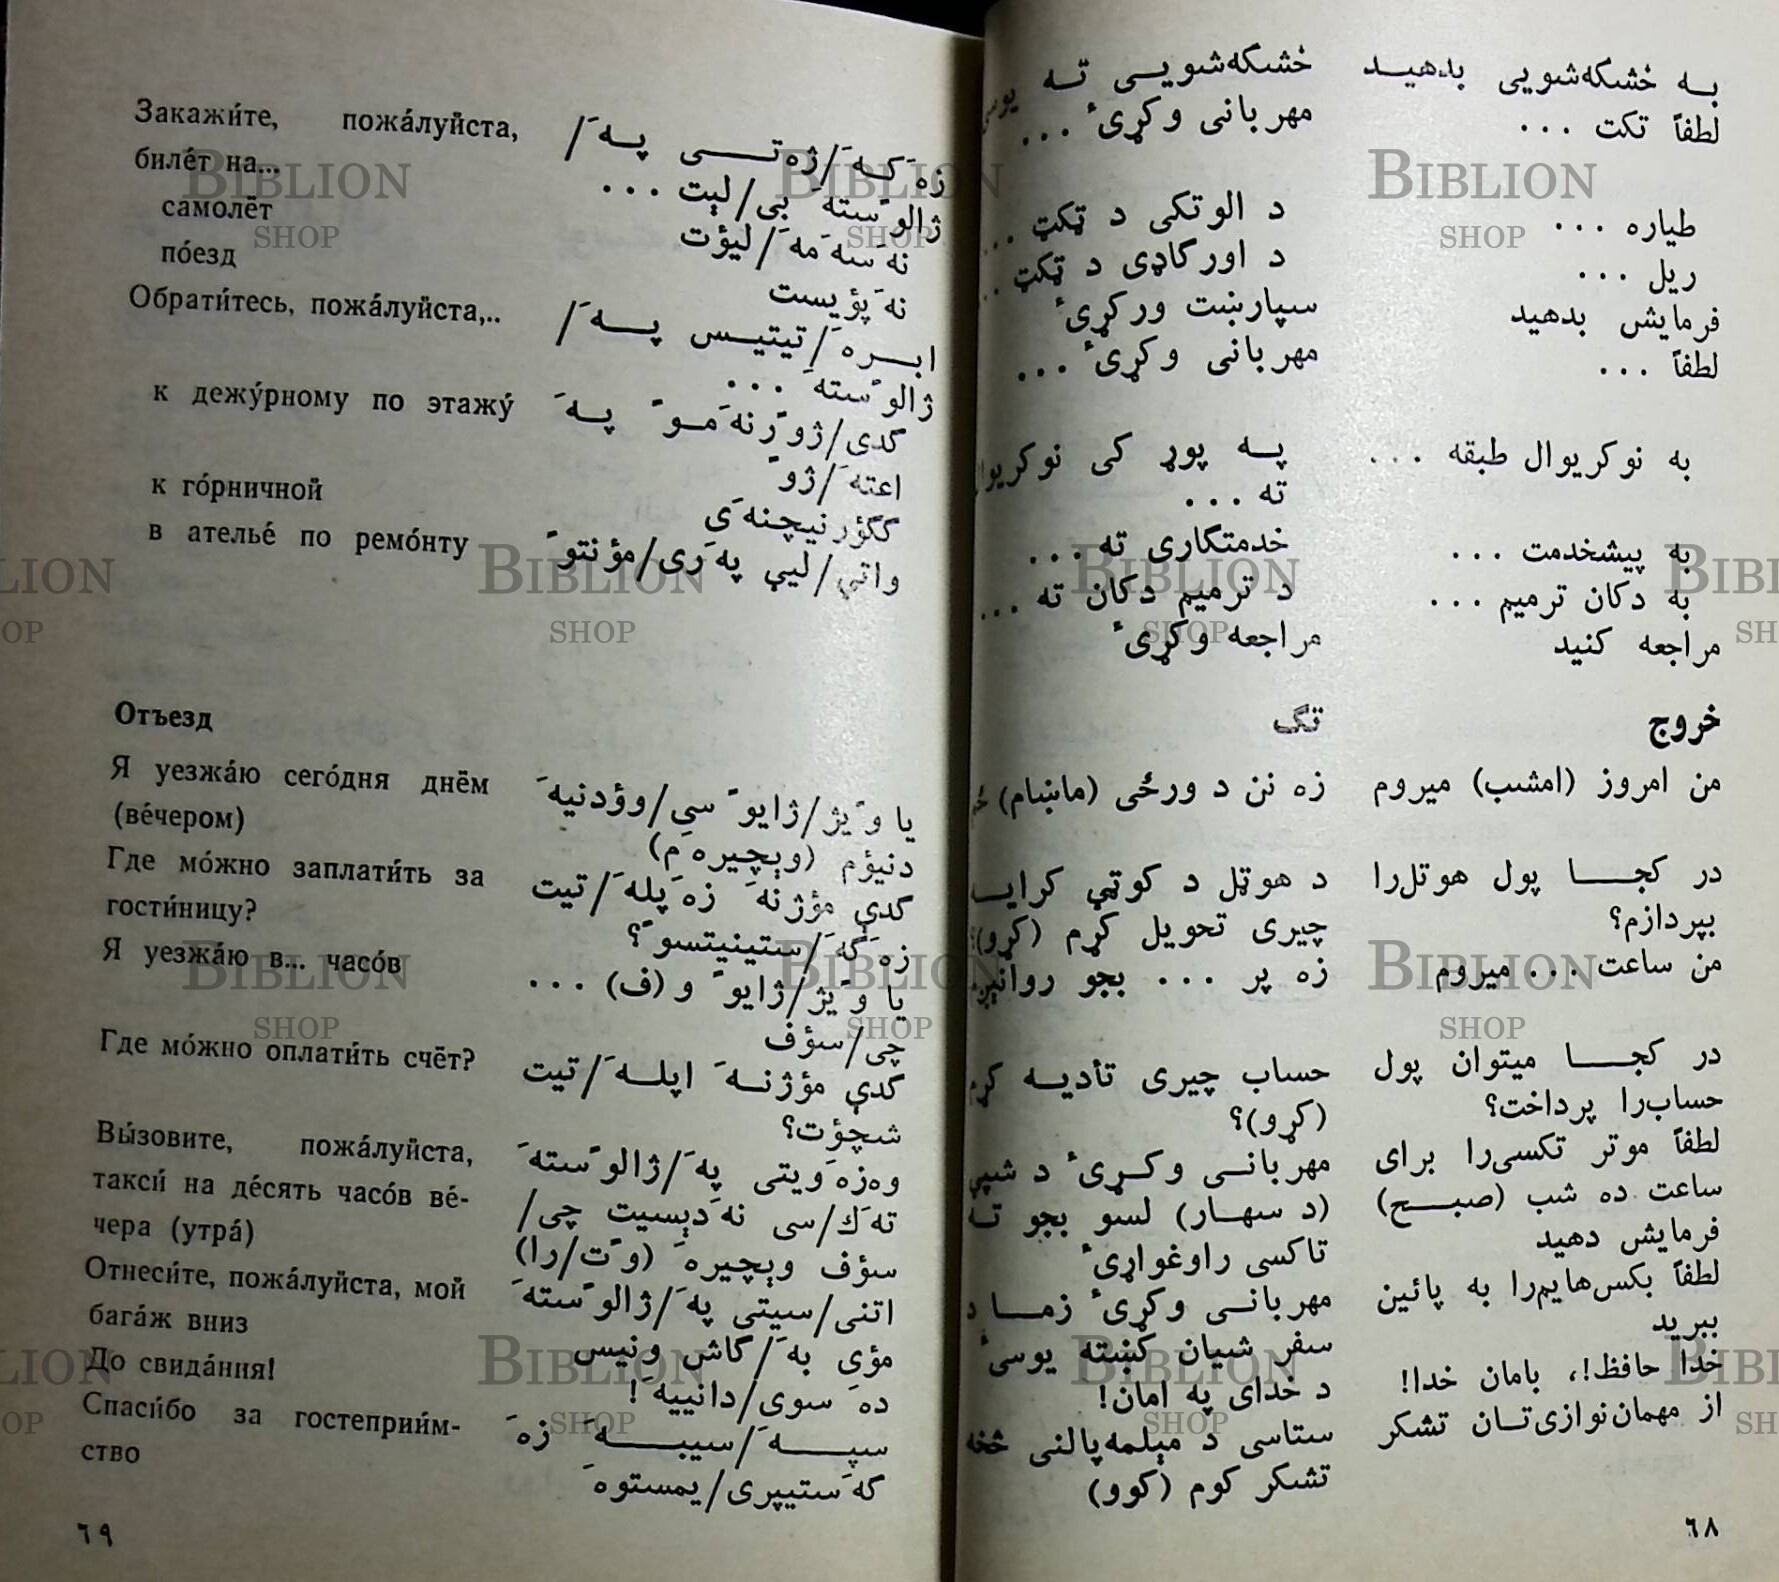 به خشکه‌شویی بدهید
لطفاً تکت ...
طیاره ...
ریل ...
فرمایش بدهید
لطفاً ...
به نوکریوال طبقه ...
به پیشخدمت ...
به دکان ترمیم ...
مراجعه کنید
خروج
من امروز (امشب) میروم
در کجا پول هوتل‌را
بپردازم؟
من ساعت ... میروم
در کجا میتوان پول
حساب‌را پرداخت؟
لطفاً موتر تکسی‌را برای
ساعت ده شب (صبح)
فرمایش دهید
لطفاً بکس‌هایم‌را به پائین
ببرید
خدا حافظ!، بامان خدا!
از مهمان‌نوازی‌تان تشکر
٦٨
خشکه‌شویی ته
مهربانی وکړیٔ ...
د الوتکی د ټکټ ...
د اورگاډی د ټکټ ...
سپارښت ورکړیٔ
مهربانی وکړیٔ ...
په پوړ کی نوکریوال
ته ...
خدمتگاری ته ...
د ترمیم دکان ته ...
مراجعه وکړیٔ
تگ
زه نن د ورځی (ماښام)
د هوټل د کوټې کرایه
چیری تحویل کړم (کړو)؟
زه پر ... بجو روانیږم
حساب چیری تأدیه کړم
(کړو)؟
مهربانی وکړیٔ د شپې
(د سهار) لسو بجو ته
تاکسی راوغواړیٔ
مهربانی وکړیٔ زما د
سفر شیان کښته یوسیٔ
د خدای په امان!
ستاسی د مېلمه‌پالنی څخه
تشکر کوم (کوو)
Закажи́те, пожа́луйста,
биле́т на...
самолёт
по́езд
Обрати́тесь, пожа́луйста,..
к дежу́рному по этажу́
к го́рничной
в ателье́ по ремо́нту
Отъезд
Я уезжа́ю сего́дня днём
(ве́чером)
Где мо́жно заплати́ть за
гости́ницу?
Я уезжа́ю в... часо́в
Где мо́жно оплати́ть счёт?
Вы́зовите, пожа́луйста,
такси́ на де́сять часо́в ве́-
чера (утра́)
Отнеси́те, пожа́луйста, мой
бага́ж вниз
До свида́ния!
Спаси́бо за гостеприи́м-
ство
زهَ کهَ/ژه‌تی پهَ/
ژالوًستهَ بی/لېت ...
نهَ سهَ مهَ/لیؤت
نهَ پؤیست
ابرهَ/تیتیس پهَ/
ژالوًستهَ ...
گدی/ژوًرنهَ‌موً پهَ
اعتهَ/ژوً
کگؤرنیچنهَ‌ی
واتې/لیې پهَ‌ری/مؤنتوً
یا وًیژ/ژایوً سې/وؤدنیهَ
دنیؤم (وېچیرهَ‌م)
گدې مؤژنهَ زهَ‌پلهَ/تیت
زهَ گهَ/ستینیتسوً؟
یا وًیژ/ژایوً و (ف) ...
چی/سؤف
گدې مؤژنهَ اپلهَ/تیت
شچؤت؟
وه‌زهَ‌ویتی پهَ/ژالوًستهَ
تهَ‌ك/سی نهَ‌دېسیت چی/
سؤف وېچیرهَ (وًت/را)
اتنی/سیتی پهَ/ژالوًستهَ
مؤی بهَ/گاش ونیس
دهَ سوی/دانییهَ!
سپه‌َ/سیبهَ زهَ
گهَ‌ستیپری/یمستوهَ
٦٩
BIBLION
SHOP